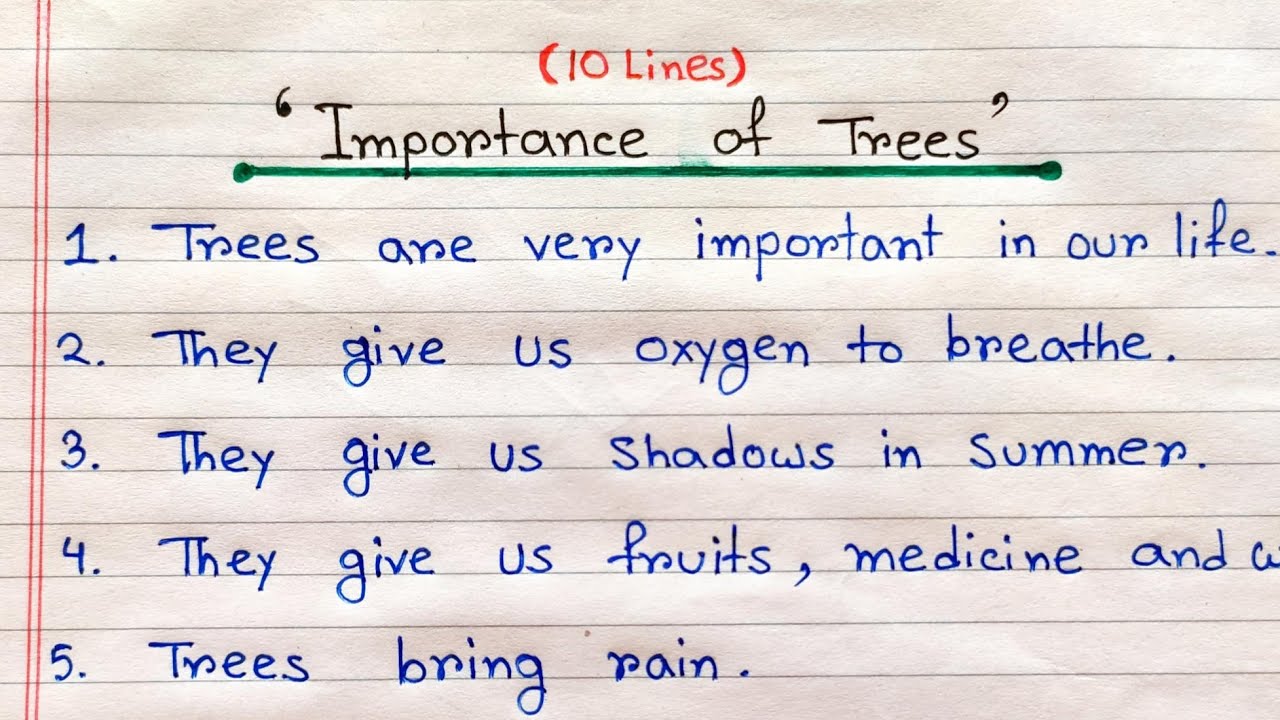 (10 Lines)
‘Importance of Trees’
1. Trees are very important in our life.
2. They give us oxygen to breathe.
3. They give us shadows in summer.
4. They give us fruits, medicine and
5. Trees bring rain.